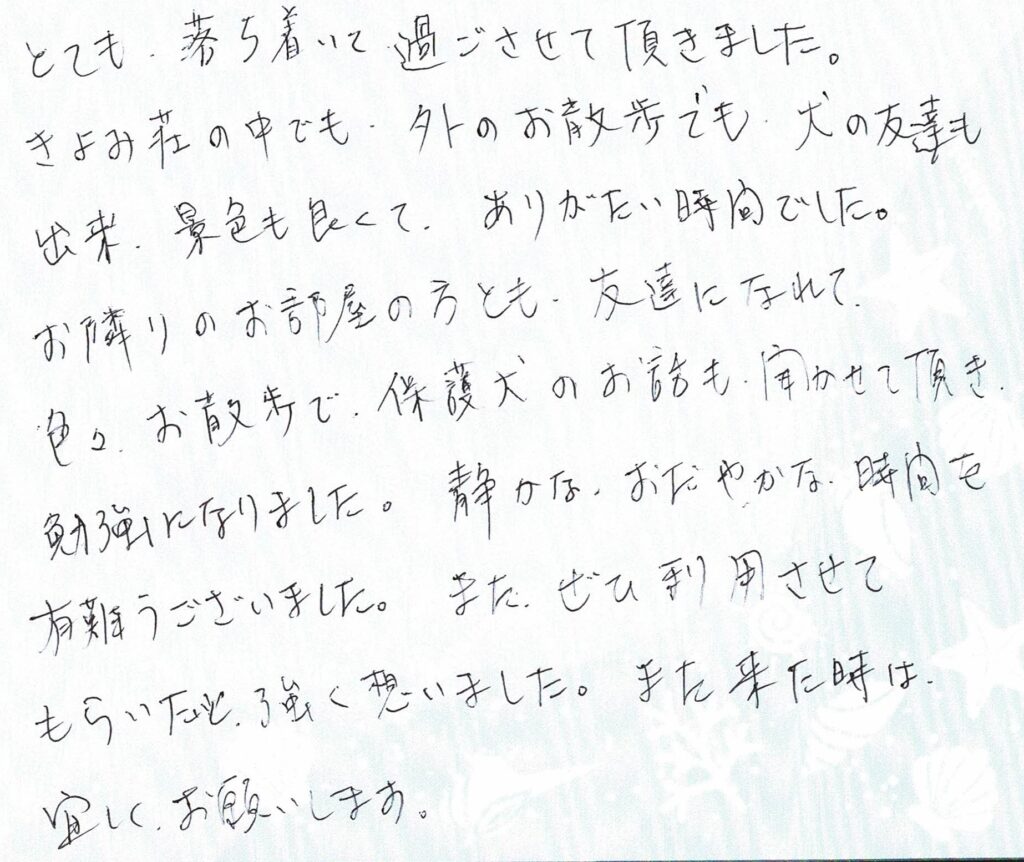 とても、落ち着いて、過ごさせて頂きました。
きよみ荘の中でも、外のお散歩でも、犬の友達も
出来、景色も良くて、ありがたい時間でした。
お隣りのお部屋の方とも、友達になれて、
色々、お散歩で、保護犬のお話も、聞かせて頂き、
勉強になりました。静かな、おだやかな、時間を
有難うございました。また、ぜひ利用させて
もらいたいと、強く想いました。また来た時は、
宜しく、お願いします。